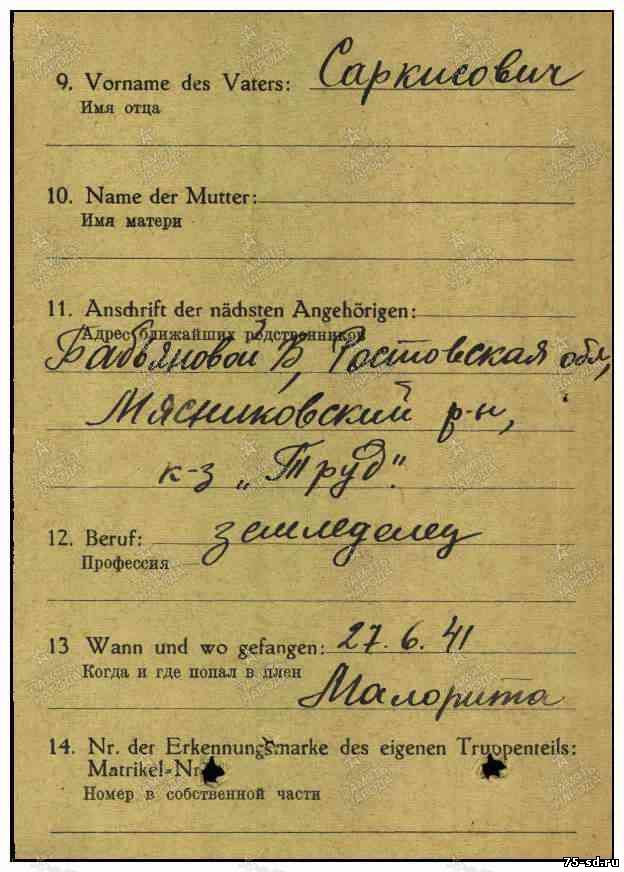 9. Vorname des Vaters: Саркисович
Имя отца
10. Name der Mutter:
Имя матери
11. Anschrift der nächsten Angehörigen:
Адрес ближайших родственников
Бабьяновой В, Ростовская обл,
Мясниковский р-н,
к-з „Труд".
12. Beruf: земледелец
Профессия
13 Wann und wo gefangen: 27.6.41
Когда и где попал в плен
Малорита
14. Nr. der Erkennungsmarke des eigenen Truppenteils:
Matrikel-Nr
Номер в собственной части
75-sd.ru